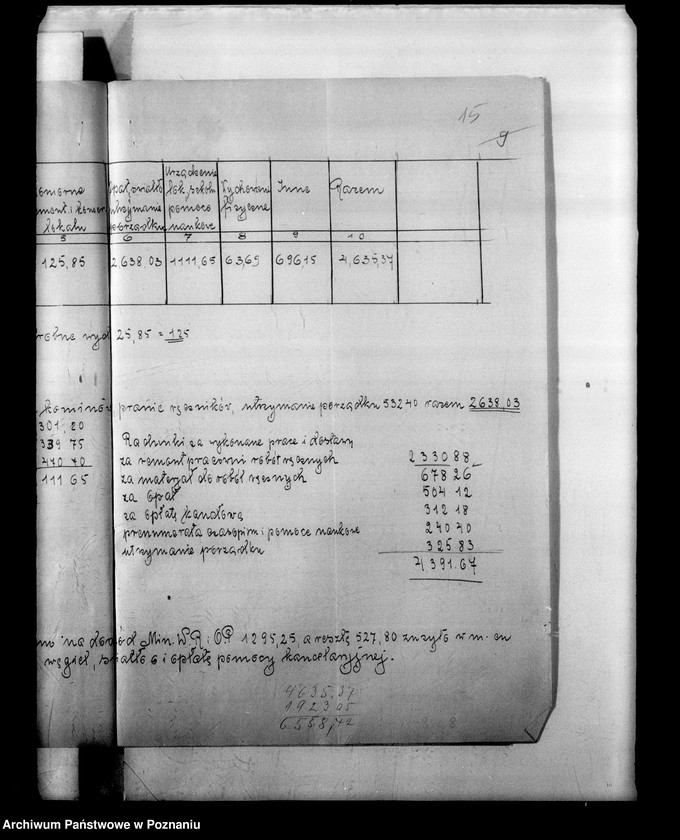 15
9
Komorne opał, światło Urządzenie Wychowanie Inne Razem
remont. i konser. utrzymanie lok. szkoln. fizyczne
lokalu porządku pomoce
naukowe
5 6 7 8 9 10
125,85 2.638.03 1111,65 63,69 696,15 4.635,37
drobne wyd. 25,85 = 125
kominów, pranie ręczników, utrzymanie porządku 532 40 razem 2638,03
301 20
339 75 Rachunki za wykonane prace i dostawy
470 70 za remont pracowni robót ręcznych 2330 88
1111 65 za materjał do robót ręcznych 678 26
za opał 504 12
za opłatę kanałową 312 18
prenumerata czasopism i pomoce naukowe 240 40
utrzymanie porządku 325 83
4391.67
na dochód Min. W.R. i O.P. 1295,25, a resztę 527,80 zużyto w m-cu
węgiel, światło i opłatę pomocy kancelaryjnej.
4635,37
1923 05
6558,42
Archiwum Państwowe w Poznaniu